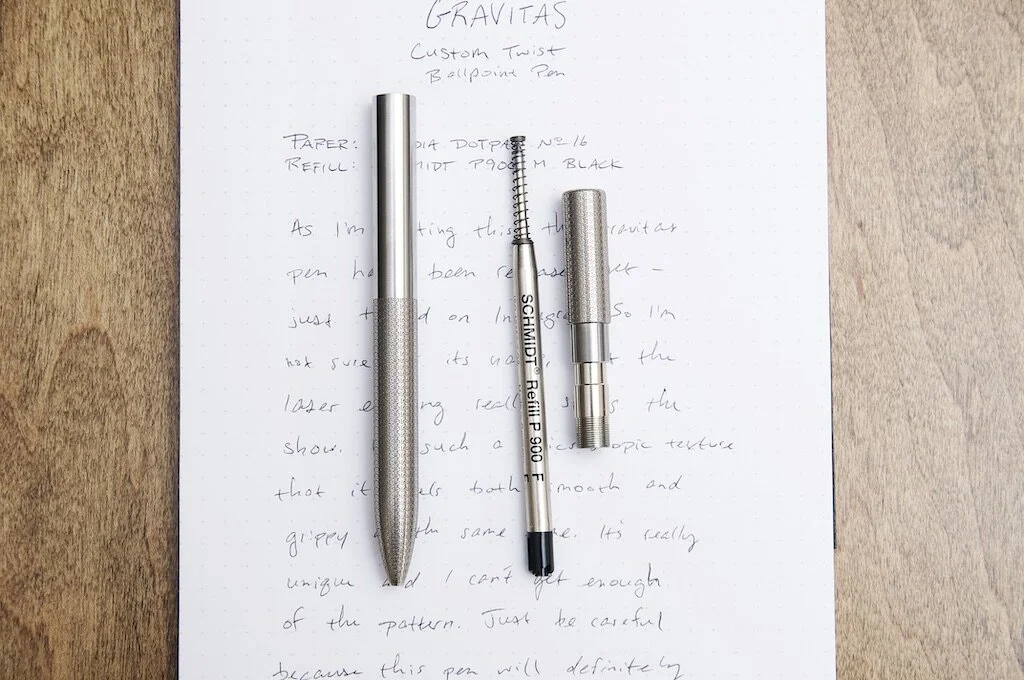 GRAVITAS
Custom Twist
Ballpoint Pen
PAPER: Nº 16
REFILL: M BLACK
As I'm this Gravitas
pen been –
just on So I'm
not sure its the
laser the
show. such a texture
that both smooth and
grippy same It's really
unique and I can't get enough
of the pattern. Just be careful
because this pen will definitely
SCHMIDT® Refill P 900 F